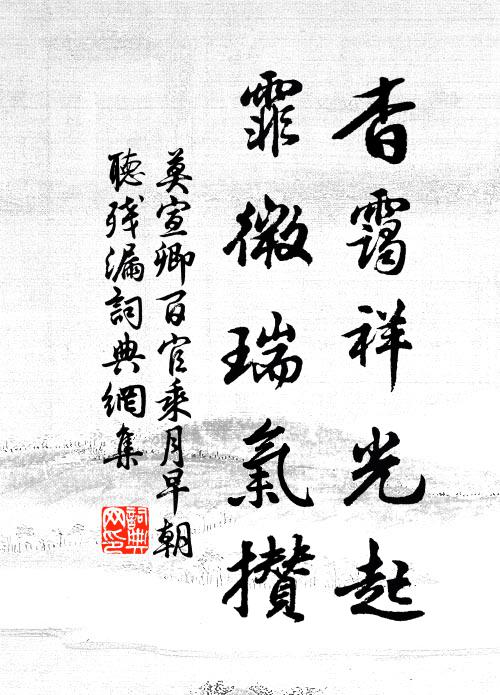 杳靄祥光起
霏微瑞氣攢
莫宣卿百官乘月早朝
聽殘漏詞典網集
詞典
网印